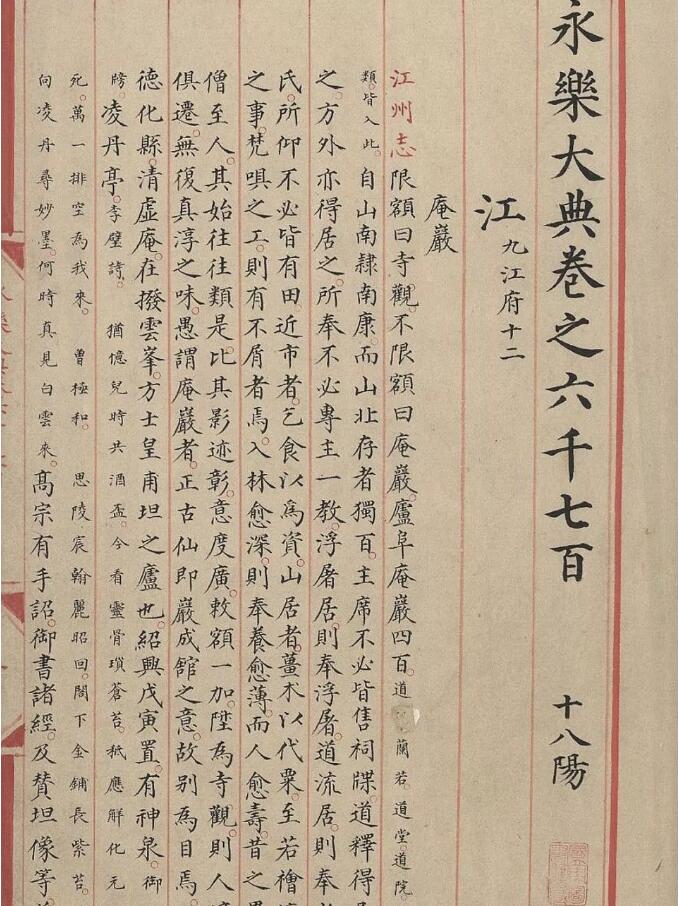 永樂大典卷之六千七百 十八陽
江 九江府十二
庵巖
江州志限額曰寺觀不限額曰庵巖廬阜庵巖四百道蘭若道堂道院
類皆入此自山南隸南康而山北存者獨百主席不必皆售祠牒道釋得
之方外亦得居之所奉不必專主一教浮屠居則奉浮屠道流居則奉
氏所仰不必皆有田近市者乞食以為資山居者薑朮以代粟至若檜
之事梵唄之工則有不屑者焉入林愈深則奉養愈薄而人愈壽昔之
僧至人其始往往類是比其影迹彰意度廣敕額一加陞為寺觀則人
俱遷無復真淳之味愚謂庵巖者正古仙即巖成舘之意故別為目焉
德化縣清虛庵在撥雲峯方士皇甫坦之廬也紹興戊寅置有神泉御
牓凌丹亭李壁詩 猶憶兒時共酒盃今看靈骨瑣蒼苔秪應解化元
死萬一排空為我來 曾極和 思陵宸翰麗昭回閣下金鋪長紫苔
向凌丹尋妙墨何時真見白雲來高宗有手詔御書諸經及賛坦像等